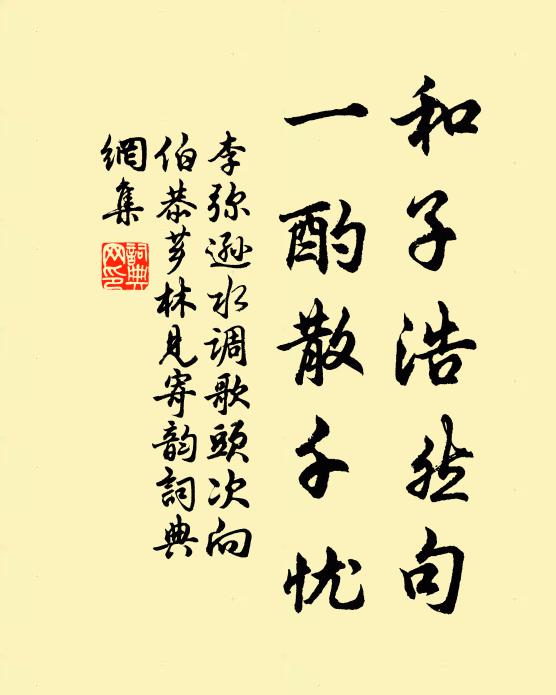 和子浩然句
一酌散千忧
李弥逊水调歌頭次向
伯恭芗林見寄韵詞典
網集
詞典
网印